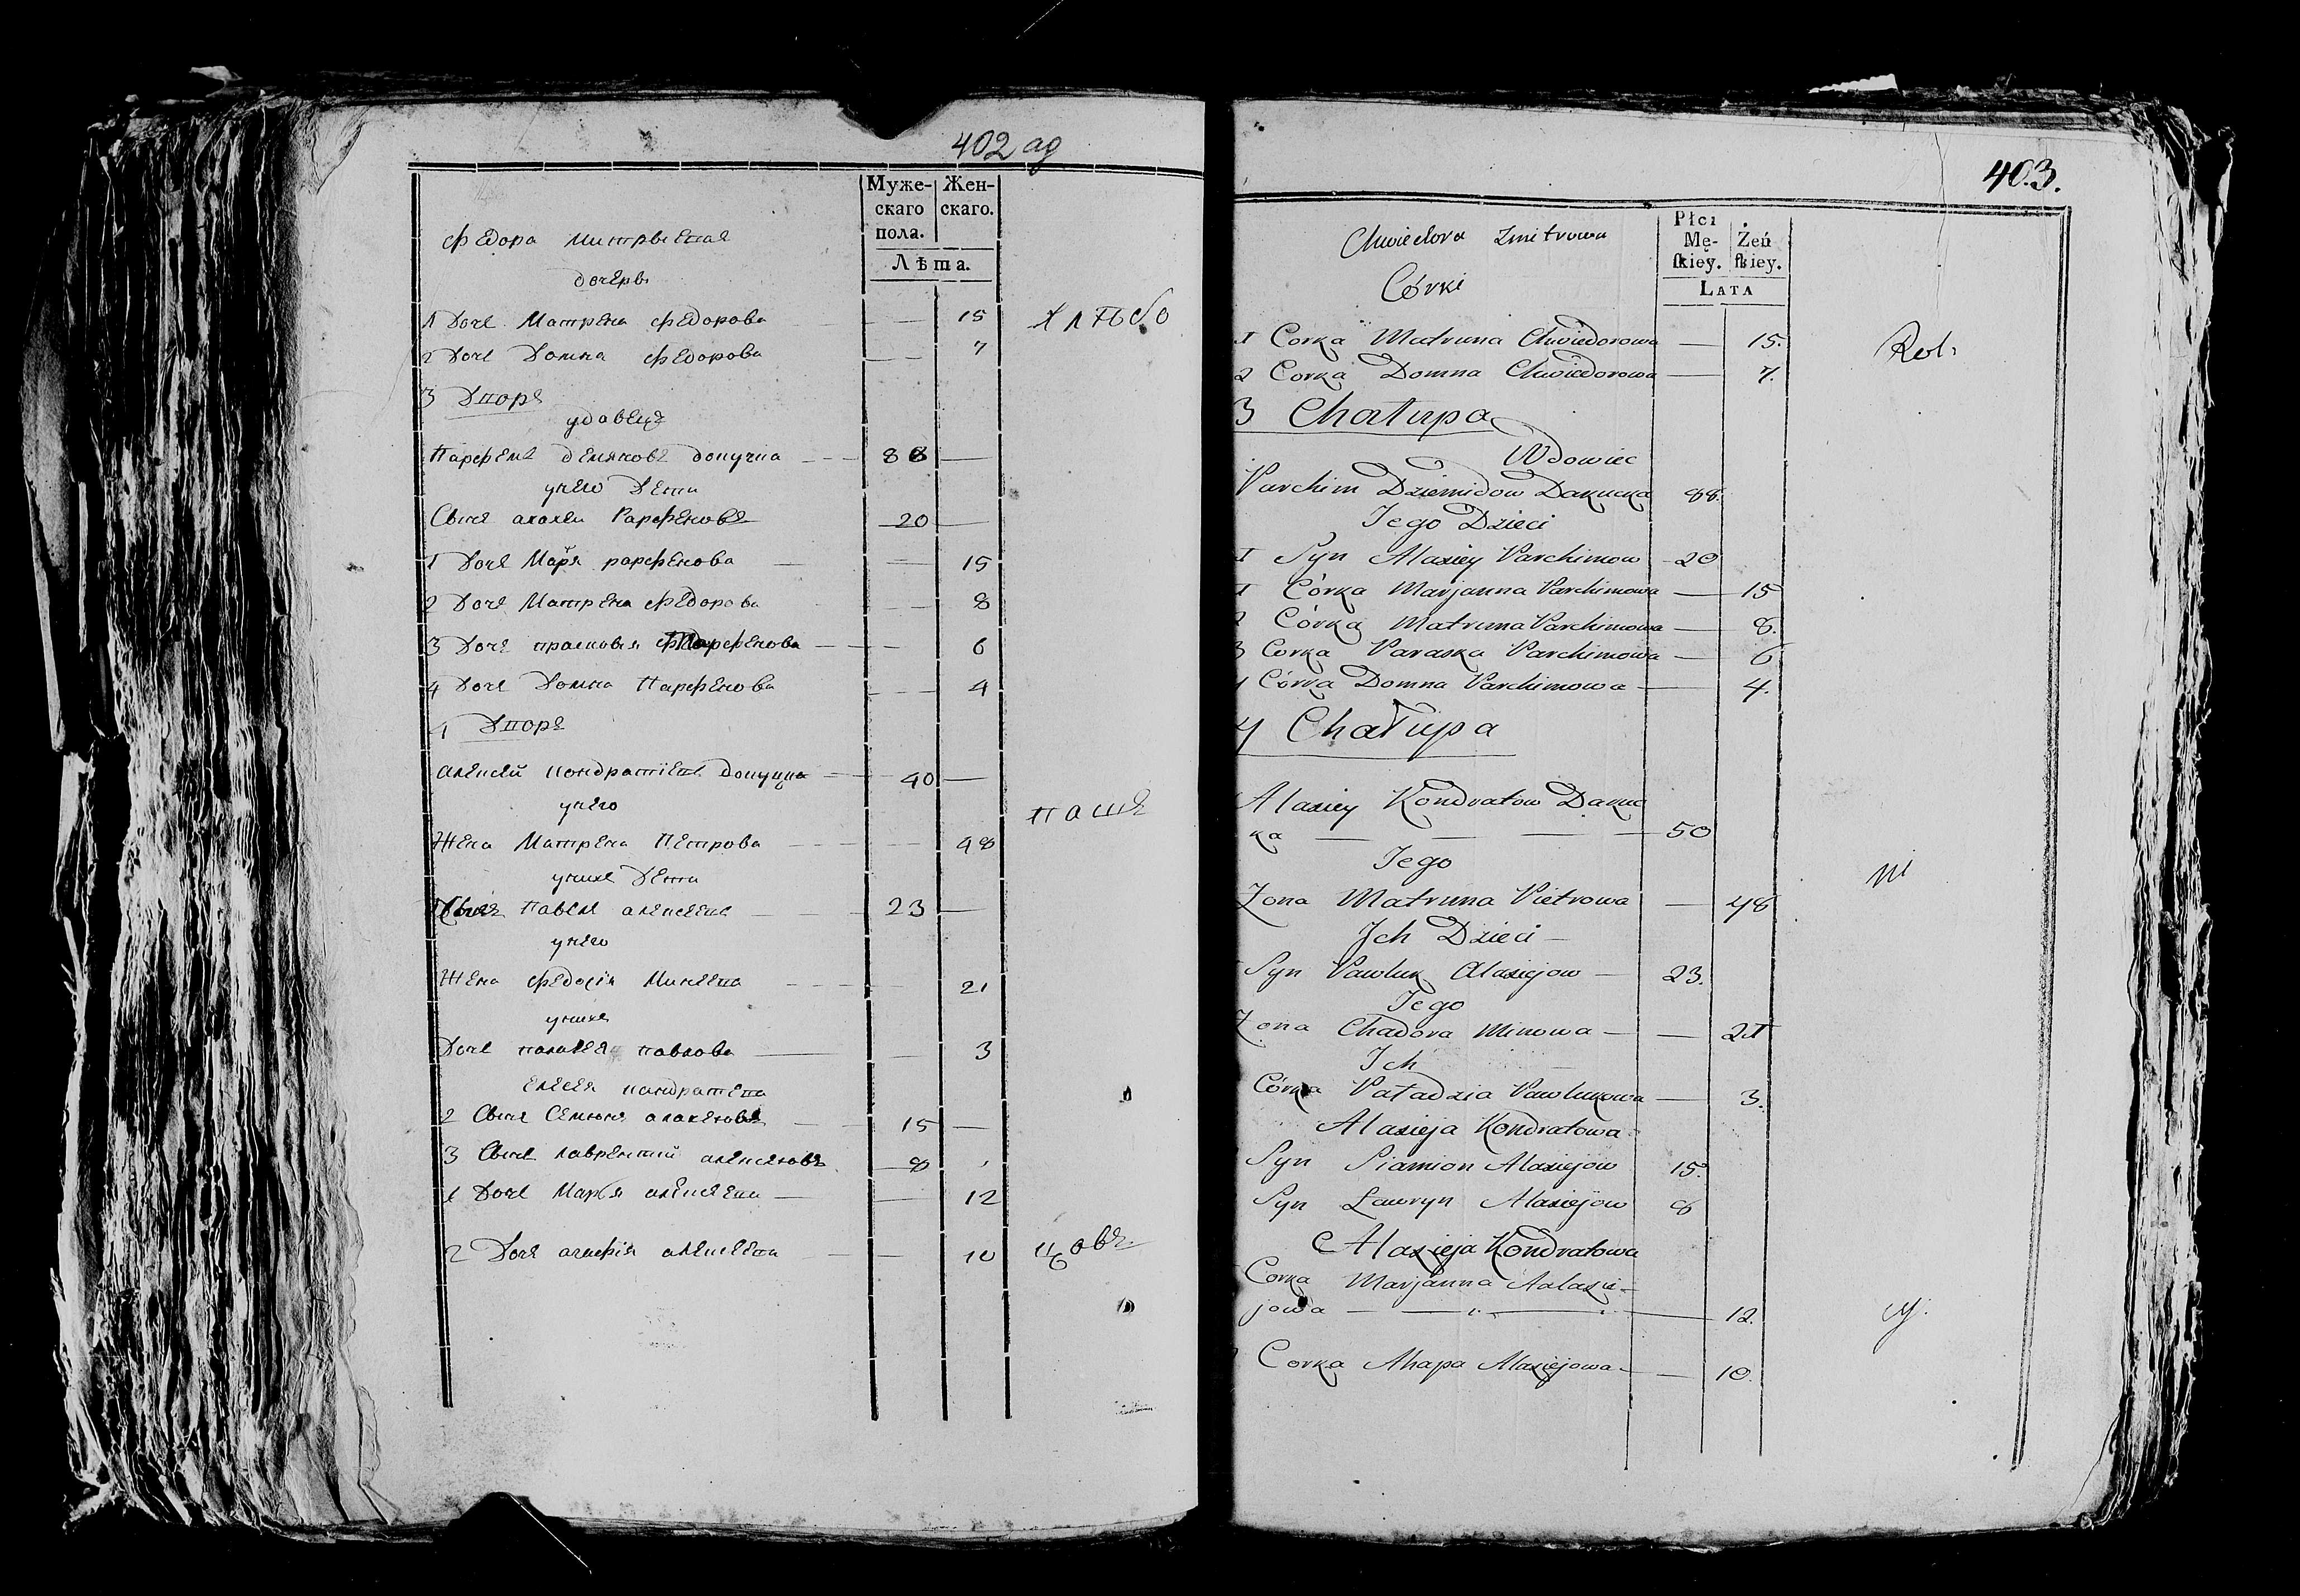 402 ад
Муже-
скаго
пола.
Жен-
скаго.
Лѣта.
Федора
дочерь
1 Дочь Матрена Федорова — 15
хлѣбо
2 Дочь Домна Федорова — 7
3 Дворъ
удовецъ
Парфенъ Демяновъ Докучка — 88 —
у него дети
Сынъ Парфеновъ 20 —
1 Дочь Маря парфенова — — 15
2 Дочь Матрена Федорова — 8
3 Дочь прасковья Парфенова — — 6
4 Дочь Домна Парфенова — 4
4 Дворъ
алексей кондратіевъ докучка — 40 —
у него
паше
Жена Матрена Петрова — — 48
у нихъ дети
Сынъ Павелъ алексеевъ — 23 —
у него
Жена Федосія Минеева — — 21
у нихъ
Дочь павлова — — 3
кондратева
2 Сынъ Семионъ — 15 —
3 Сынъ лаврентий 8
1 Дочь Марья алексеева — — 12
2 Дочь агафія алексеева — — 10
цовъ.
403.
Płci
Mę-
ſkiey.
Żeń
ſkiey.
LATA
Chwiedora Zmitrowa
Córki
1 Corka Matruna Chwiedorowa — 15.
Rol:
2 Corka Domna Chwiedorowa — 7.
3 Chałupa
Wdowiec
Parchim Dziemidow Dakucka 88.
Jego Dzieci
1 Syn Alaxiey Parchimow 20
1 Córka Marjanna Parchimowa — 15
2 Córka Matruna Parchimowa — 8.
3 Corka Paraska Parchimowa — 6
4 Córka Domna Parchimowa — 4.
4 Chałupa
Alaxiey Kondratow Dakuc
ka — — — — 50
Jego
ni
Zona Matruna Pietrowa — 48
Ich Dzieci —
Syn Pawluk Alaxiejow — 23.
Jego
Zona Chadora Minowa — — 21
Ich
Córka Paładzia Pawlukowa — 3.
Alaxieja Kondratowa
Syn Siamion Alaxiejow 15.
Syn Ławryn Alaxiejow 8
Alaxieja Kondratowa
Corka Marjanna Aalaxie-
jowa — — — 12.
cy.
Corka Ahapa Alaxiejowa — — 10.